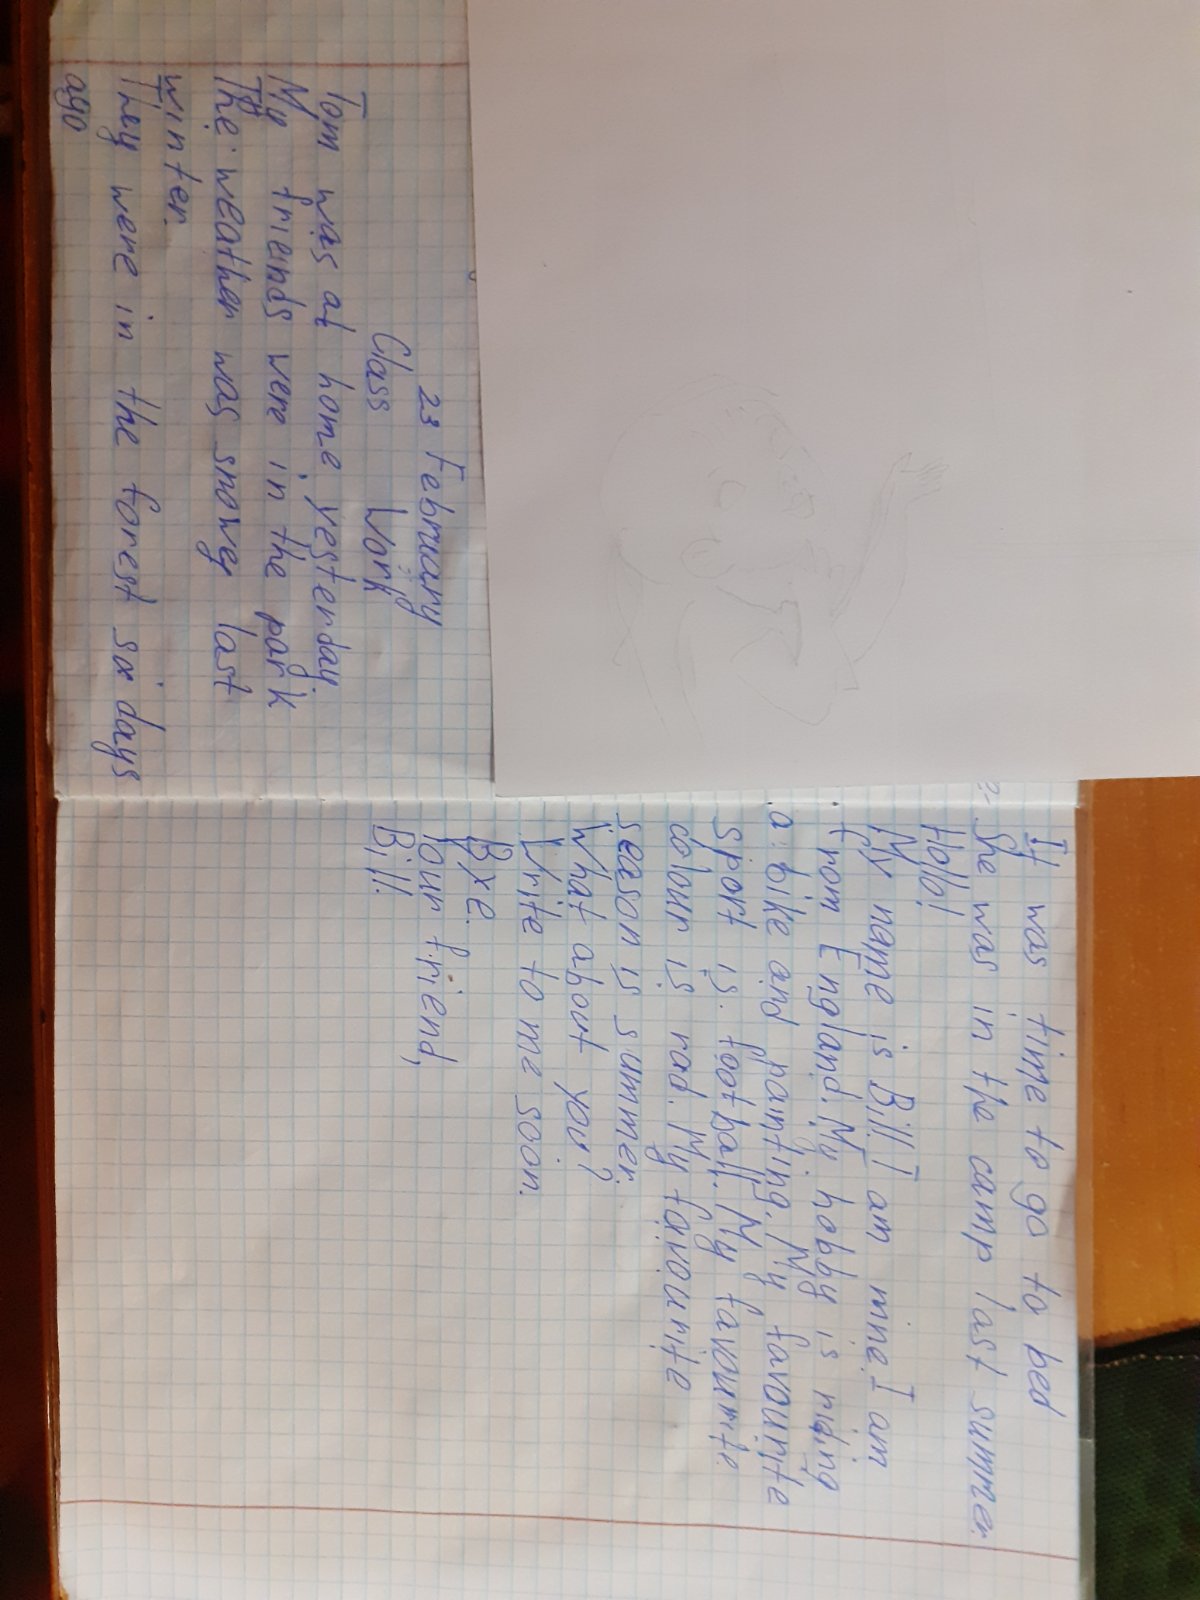 23 February
Class Work
Tom was at home yesterday.
My friends were in the park
The weather was snowy last
winter.
They were in the forest six days
ago
It was time to go to bed
She was in the camp last summer.
Hollo!
My name is Bill. I am nine. I am
from England. My hobby is riding
a bike and painting. My favourite
sport is football. My favourite
colour is rad. My favourite
season is summer.
What about you?
Write to me soon.
Bye.
Your friend,
Bill.